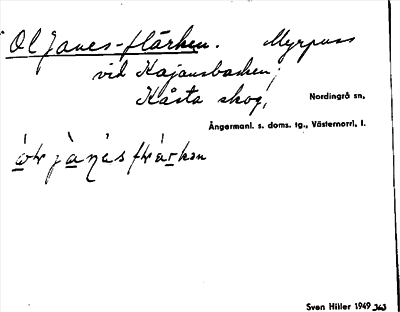 Ol Janes-flärken. Myrpuss
vid Kajansbacken,
Kåsta skog,
Nordingrå sn,
Ångermanl. s. doms. tg., Västernorrl, l.
Sven Hiller 1949